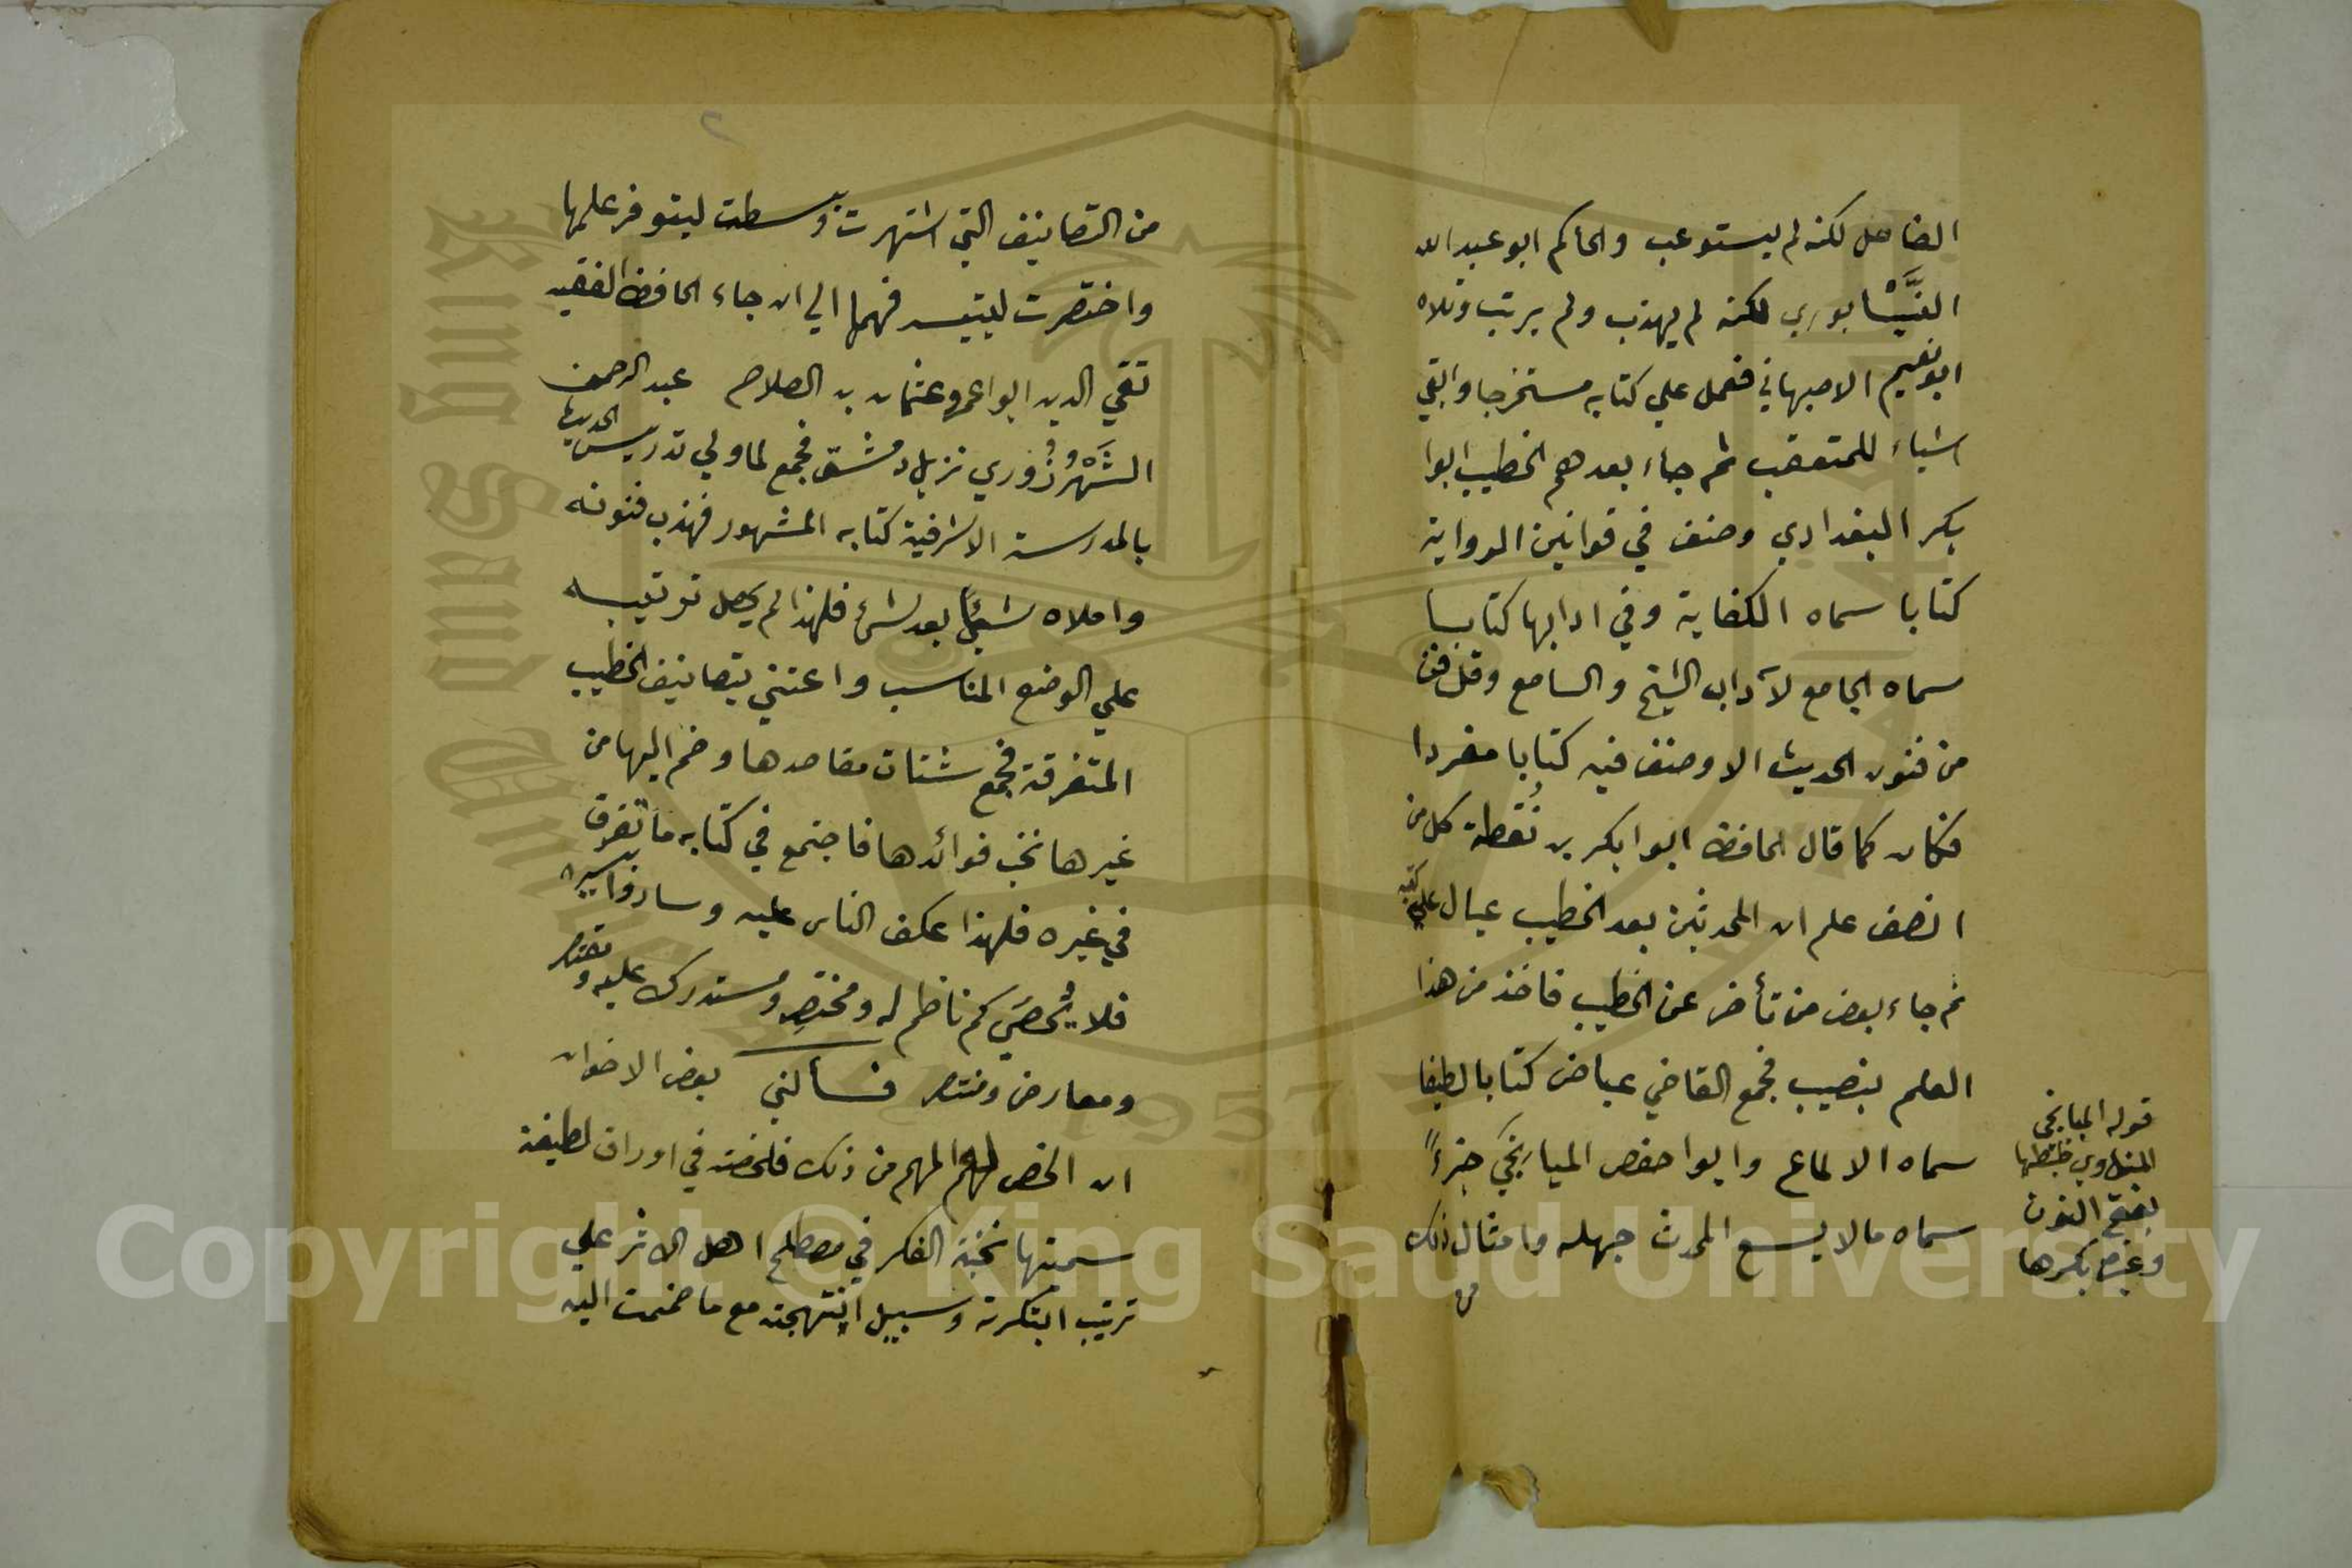 الفاصل لكنه لم يستوعب والحاكم ابو عبد الله
النَّيْسابوري لكنه لم يهذب ولم يرتب وتلاه
ابو نعيم الاصبهاني فعمل علي كتابه مستخرجا وابقي
اشياء للمتعقب ثم جاء بعدهم الخطيب ابوا
بكر البغدادي وصنف في قوانين الرواية
كتابا سماه الكفاية وفي ادابها كتابا
سماه الجامع لآداب الشيخ والسامع وقل فن
من فنون الحديث الا وصنف فيه كتابا مفردا
فكان كما قال الحافظ ابوا بكر بن نُقطة كل من
انصف علم ان المحدثين بعد الخطيب عيال علي كتبه
ثم جاء بعض من تأخر عن الخطيب فاخذ من هذا
العلم بنصيب فجمع القاضي عياض كتابا لطيفا
سماه الالماع وابوا حفص الميانجي جزءً
سماه مالا يسع المحدث جهله وامثال ذلك
من
قوله الميانجي
المناوي ضبطها
بفتح النون
وغيره بكسرها
٢
من التصانيف التي اشتهرت وبسطت ليتوفر علمها
واختصرت ليتيسر فهمها الي ان جاء الحافظ الفقيه
تقي الدين ابوا عمرو عثمان بن الصلاح عبد الرحمن
الشَّهْرُزُوري نزيل دمشق فجمع لما ولي تدريس الحديث
بالمدرسة الاشرفية كتابه المشهور فهذب فنونه
واملاه شيئاً بعد شئ فلهذا لم يحصل ترتيبه
علي الوضع المناسب واعتني بتصانيف الخطيب
المتفرقة فجمع شتات مقاصدها وضم اليها من
غيرها نخب فوائدها فاجتمع في كتابه ما تفرق
في غيره فلهذا عكف الناس عليه وساروا بسيره
فلا يُحصَي كم ناظم له ومختصِر ومستدرك عليه ومقتصر
ومعارض ومنتصر فسألني بعض الاخوان
ان الخص لهم المهم من ذلك فلخصته في اوراق لطيفة
سميتها نخبة الفكر في مصطلح اهل الاثر علي
ترتيب ابتكرته وسبيل انتهجته مع ما ضممت اليه